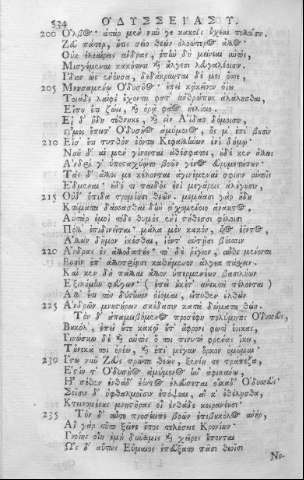 534 ΟΔΥΣΣΕΙΑΣ Υ.
200 Ὄλβος· ἀτὰρ μὲν νῦν γε κακοῖς ἔχεαι πολέεσιν.
Ζεῦ πάτερ, οὔτις σεῖο θεῶν ὀλοώτερος ἄλλος·
Οὐκ ἐλεαίρεις ἄνδρας, ἐπὴν δὴ γείνεαι αὐτός,
Μισγέμεναι κακότητι καὶ ἄλγεσι λευγαλέοισιν.
Ἴδιον ὡς ἐνόησα, δεδάκρυνται δέ μοι ὄσσε,
205 Μνησαμένῳ Ὀδυσῆος· ἐπεὶ κἀκεῖνον ὀΐω
Τοιάδε λαίφε' ἔχοντα κατ' ἀνθρώπους ἀλάλησθαι,
Εἴ που ἔτι ζώει, καὶ ὁρᾷ φάος ἠελίοιο.
Εἰ δ' ἤδη τέθνηκε, καὶ εἰν Ἀΐδαο δόμοισιν,
Ὤ μοι ἔπειτ' Ὀδυσῆος ἀμύμονος, ὅς μ' ἐπὶ βουσὶν
210 Εἷσ' ἔτι τυτθὸν ἐόντα Κεφαλλήνων ἐνὶ δήμῳ.
Νῦν δ' αἱ μὲν γίνονται ἀθέσφατοι, οὐδέ κεν ἄλλως
Ἀνδρί γ' ὑποσταχύοιτο βοῶν γένος εὐρυμετώπων·
Τὰς δ' ἄλλοι με κέλονται ἀγινέμεναι σφίσιν αὐτοῖς
Ἔδμεναι· οὐδέ τι παιδὸς ἐνὶ μεγάροις ἀλέγουσιν,
215 Οὐδ' ὄπιδα τρομέουσι θεῶν· μεμάασι γὰρ ἤδη
Κτήματα δάσσασθαι δὴν οἰχομένοιο ἄνακτος.
Αὐτὰρ ἐμοὶ τόδε θυμὸς ἐνὶ στήθεσσι φίλοισι
Πόλλ' ἐπιδινεῖται· μάλα μὲν κακὸν, υἷος ἐόντος,
Ἄλλων δῆμον ἱκέσθαι, ἰόντ' αὐτῇσι βόεσσιν
220 Ἄνδρας ἐς ἀλλοδαπούς· τὸ δὲ ῥίγιον, αὖθι μένοντα
Βουσὶν ἐπ' ἀλλοτρίῃσι καθήμενον ἄλγεα πάσχειν.
Καί κεν δὴ πάλαι ἄλλον ὑπερμενέων βασιλήων
Ἐξικόμην φεύγων· (ἐπεὶ οὐκέτ' ἀνεκτὰ πέλονται)
Ἀλλ' ἔτι τὸν δύστηνον ὀΐομαι, εἴποθεν ἐλθὼν
225 Ἀνδρῶν μνηστήρων σκέδασιν κατὰ δώματα θείη.
Τὸν δ' ἀπαμειβόμενος προσέφη πολύμητις Ὀδυσσεύς,
Βουκόλ', ἐπεὶ οὔτε κακῷ οὔτ' ἄφρονι φωτὶ ἔοικας,
Γινώσκω δὲ καὶ αὐτὸς ὅ τοι πινυτὴ φρένας ἵκει,
Τοὔνεκά τοι ἐρέω, καὶ ἐπὶ μέγαν ὅρκον ὀμοῦμαι·
230 Ἴστω νῦν Ζεὺς πρῶτα θεῶν, ξενίη τε τράπεζα,
Ἱστίη τ' Ὀδυσῆος ἀμύμονος ἣν ἀφικάνω,
Ἦ σέθεν ἐνθάδ' ἐόντος ἐλεύσεται οἴκαδ' Ὀδυσσεύς·
Σοῖσιν δ' ὀφθαλμοῖσιν ἐπόψεαι, αἴ κ' ἐθέλῃσθα,
Κτεινομένους μνηστῆρας οἳ ἐνθάδε κοιρανέουσι.
235 Τὸν δ' αὖτε προσέειπε βοῶν ἐπιβουκόλος ἀνὴρ,
Αἲ γὰρ τοῦτο ξεῖνε ἔπος τελέσειε Κρονίων·
Γνοίης χ' οἵη ἐμὴ δύναμις καὶ χεῖρες ἕπονται.
Ὣς δ' αὔτως Εὔμαιος ἐπεύξατο πᾶσι θεοῖσι
Νο-